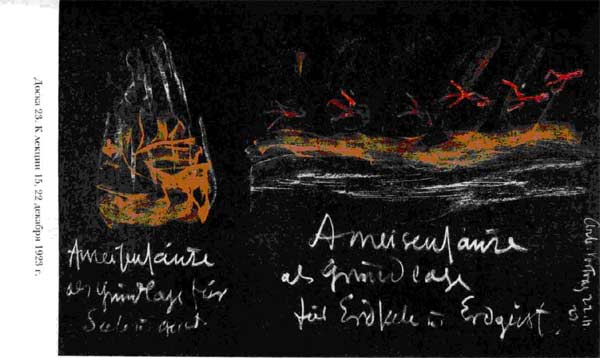 Доска 23. К лекции 15, 22 декабря 1923 г.
Ameisensäure
als Grundlage für
Seele u. Geist
Ameisensäure
als Grundlage
für Erdseele u. Erdgeist.
Vortrag